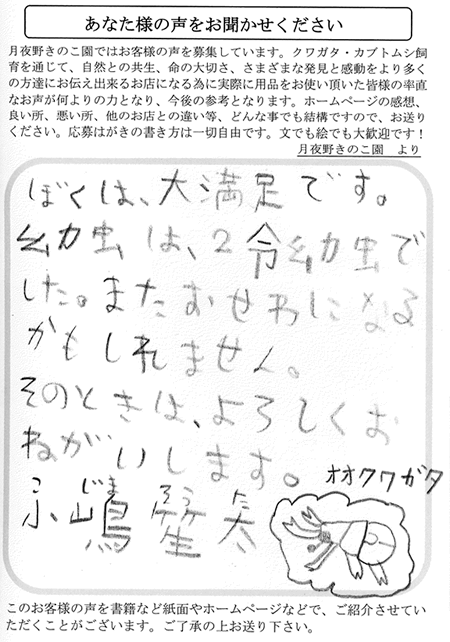 あなた様の声をお聞かせください
月夜野きのこ園ではお客様の声を募集しています。クワガタ・カブトムシ飼
育を通じて、自然との共生、命の大切さ、さまざまな発見と感動をより多く
の方達にお伝え出来るお店になる為に実際に用品をお使い頂いた皆様の率直
なお声が何よりの力となり、今後の参考となります。ホームページの感想、
良い所、悪い所、他のお店との違い等、どんな事でも結構ですので、お送り
ください。応募はがきの書き方は一切自由です。文でも絵でも大歓迎です！
月夜野きのこ園　より
ぼくは、大満足です。
幼虫は、2令幼虫で
した。またおせわになる
かもしれません。
そのときは、よろしくお
ねがいします。
オオクワガタ
こ じま た
小嶋 太
このお客様の声を書籍など紙面やホームページなどで、ご紹介させてい
ただくことがございます。ご了承の上お送り下さい。